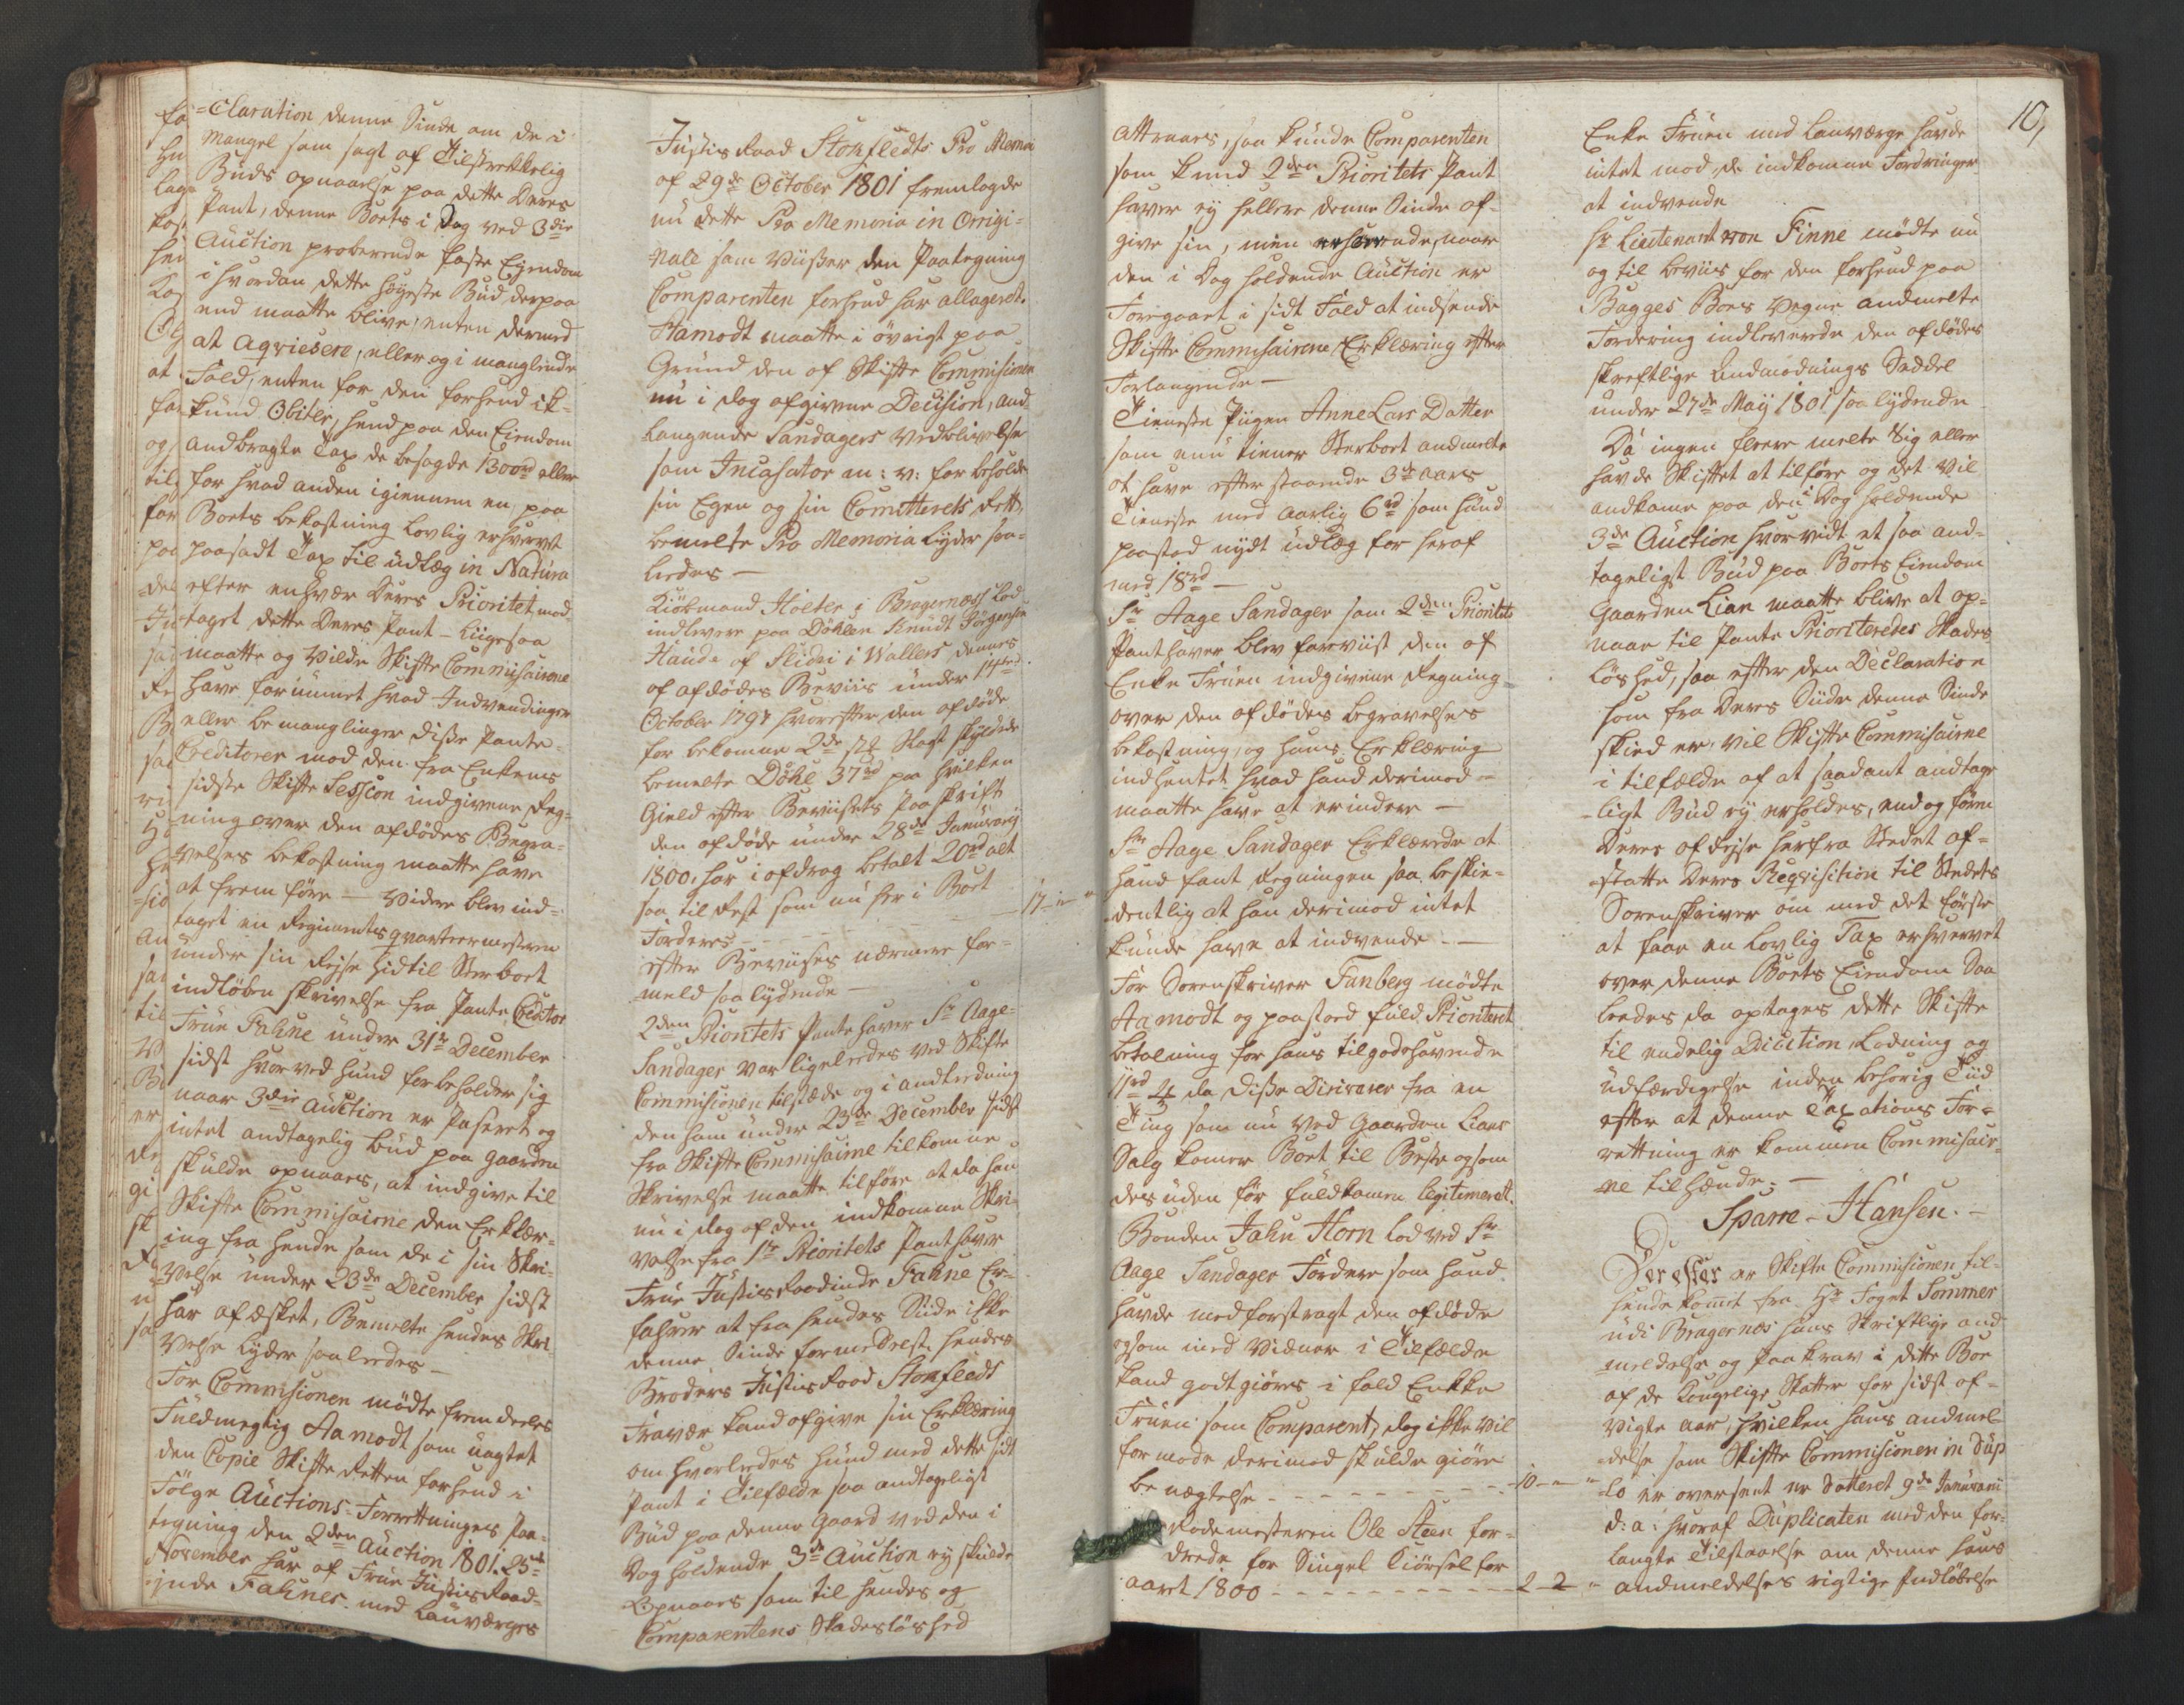 =Claration denne Sinde om de i
Mangel som sagt af Tilstrekkelig
Buds opnaaelse paa dette Deres
Pant, denne Boets i Dag ved 3die
Auction proberende faste Ejendom
i hvordan dette høyeste Bud, derpaa
end maatte blive, enten dermed
at aqviesere, eller og i manglende
Fald, enten for den forhend ick=
kund Obiter, hend paa den Eiendom
andbragte Tax de besagde 1300rd eller
for hvad anden igiennem en paa
Boets bekostning lovlig erhvervet
paasadt Tax til udlæg in Natura
efter enhver Deres Prioritet, mod=
taget dette Deres Pant – Liigesaa
maatte og vilde Skifte Commissairene
have fornummet hvad Indvendinger
eller bemanglinger disse Pante=
Creditorer mod den fra Enkens
sidste Skifte Session indgivene Reg=
ning over den afdødes Begra=
velses bekostning maatte have
at fremføre – Videre blev ind=
taget en Regimentsqvarteermesteren
under sin Rejse hidtil Sterboet
indløben skrivelse fra Pante Creditor
Frue Fahne under 31te December
sidst hvorved hund forbeholder sig
naar 3die Auction er Paseret og
intet andtagelig bud paa gaarden
skulde opnaaes, at indgive til
Skifte Commissairne den Erklær=
ing fra hende som de i sin Skri=
velse under 23de December sidst
har afæsket, Bemelte hendes Skri=
velse lyder saaledes –
For Commissionen mødte fremdeles
Fuldmegtig Aamodt som uagtet
den Copie Skifte Retten forhend i
Følge Auctions=Forrettningens Paa=
tegning den 2den Auction 1801. 25de
November har af Frue Justits Raad=
inde Fahnes med Laugværges
Justits Raad Stokfledts Pro Memoria
af 29de October 1801 fremlagde
nu dette Pro Memoria in Orrigi=
nale som viiser den Paategning
Comparenten forhend har allageret.
Aamodt maatte i øvrigt paa
Grund den af Skifte Commisionen
nu i dag afgivene Decision, and=
langende Sandagers vedblivelse
som Incasator m: v: forbeholde
sin Egen og sin Comitterets Rett,
bemelte Pro Memoria lyder saa=
ledes –
Kiøbmand Holter i Bragernæss lod
indlevere paa Döhlen Knudt Jörgensen
Hande af Slidri i Wallers dennes
af afdødes Beviis under 14de
October 1797 hvorefter den afdøde
for bekomne 2de stk Slagt skyldede
bemelte Döhl 37rd paa hvilken
Gield efter Beviisets Paaskrift
den afdøde under 28de Januarij
1800. har i afdrag betalt 20rd alt
saa til Rest som nu her i Boet
Fordres – – – – 17 – " – "
efter Beviises nærmere for=
meld saa lydende –
2den Prioritets Pantehaver Sr Aage
Sandager var ligeledes ved Skifte
Commisionen tilstæde og i andledning
den ham under 23de December sidst
fra Skifte Commisairne tilkomne
Skrivelse maatte tilføre at da han
nu i dag af den indkomne Skri=
velse fra 1te Prioritets Pant haver
Frue Justits Raadinde Fahne Er=
fahrer at fra hendes Side ikke
denne Sinde formedelst hendes
Broders Justits Raad Stokfledts
Fravær kand afgive sin Erklæring
om hvorledes hund med dette sidt
Pant i Tilfælde saa andtageligt
Bud paa denne Gaard ved den i
Dag holdende 3de Auction ej skulde
Opnaaes som til hendes og
Comparentens Skadesløshed
10,
attraaes, saa kunde Comparenten
som kund 2den Prioritets Pant
haver ej hellere denne Sinde af=
give sin, men naar
den i Dag holdende Auction er
Foregaaet i sidt Fald at indsende
Skifte Commisairene Erklæring efter
Forlangende –
Tieneste Pigen Anne Lars Datter
som nu tiener Sterboet andmelte
at have efterstaaende 3de aars
Tieneste med aarlig 6rd som hund
paastod nydt udlæg for heraf
med 18rd –
Sr Aage Sandager som 2den Prioritets
Panthaver blev foreviist den af
Enke Fruen indgivene Regning
over den afdødes begravelses
bekostning, og hans Erklæring
indhentet hvad hand derimod
maatte have at erindere –
Sr Aage Sandager Erklærede at
hand fant Regningen saa beskee=
dentlig at han derimod intet
kunde have at indvende –
For Sorenskriver Tanberg mødte
Aamodt og paastod fuld Prioriteret
betalning for hans tilgodehavende
11rd da disse Diriverer fra en
Ting som nu ved Gaarden Lians
Salg komer Boet til Beste og som
desuden før fuldkomen legitimeret.
Bonden Jahn Horn lod ved Sr
Aage Sandager Fordere som hand
havde medforstragt den afdøde
og som med Vidner i Tilfælde
kand godtgiøres i fald Enkke
Fruen som Comparent, dog ikke vil
formode derimod skulde giøre
benægtelse – – – – 10 – " – "
Rodemesteren Ole Steen for=
drede for Singel Kiørsel for
aaret 1800 – – – – 2 – 2 – "
Enke Fruen med Laugværge havde
intet mod de indkomne Fordringer
at indvende
Hr Lieutenant von Finne mødte nu
og til beviis for den forhend paa
Bagges Boes vegne andmelte
Fordering indleverede den afdødes
skreftlige Andmodnings Seddel
under 27de Maij 1801 saa lydende
Da ingen flere melte sig eller
havde Skiftet at tilføre og det vil
andkome paa den i Dag holdende
3de Auction hvorvidt et saa and=
tageligt Bud paa Boets Eiendom
Gaarden Lian maatte blive at op=
naae til Pante Prioriteredes Skades
løshed, saa efter den Declaration
som fra Deres Siide denne Sinde
skied er, vil Skifte Commisairne
i tilfælde af at saadant andtage=
=ligt Bud ej erholdes, endog førend
Deres afrejse herfra Stedet af=
=fatte Deres Reqvisition til Stedets
Sorenskriver om med det første
at faae en lovlig Tax erhvervet
over denne Boets Eiendom Saa=
ledes da optages dette Skifte
til endelig Dicition, Ladning og
udfærdigelse inden behørig Tiid
efter at denne Taxations For=
rettning er kommen Commisair=
ne tilhænde. –
Sparre – Hansen. –
Derefter er Skifte Commisionen til=
hende komet fra Hr Foget Sommer
udi Bragernæs hans Skriftlige and
meldelse og Paakrav i dette Boe
af de Kongelige Skatter for sidst af=
vigte aar, hvilken hans andmel=
delse som Skifte Commisionen in Dup
=lo er oversent er Datteret 9de Januarii
d: a: hvoraf Duplicaten med den for=
langte Tilstaaelse om denne hans
andmeldelses rigtige Indløbelse